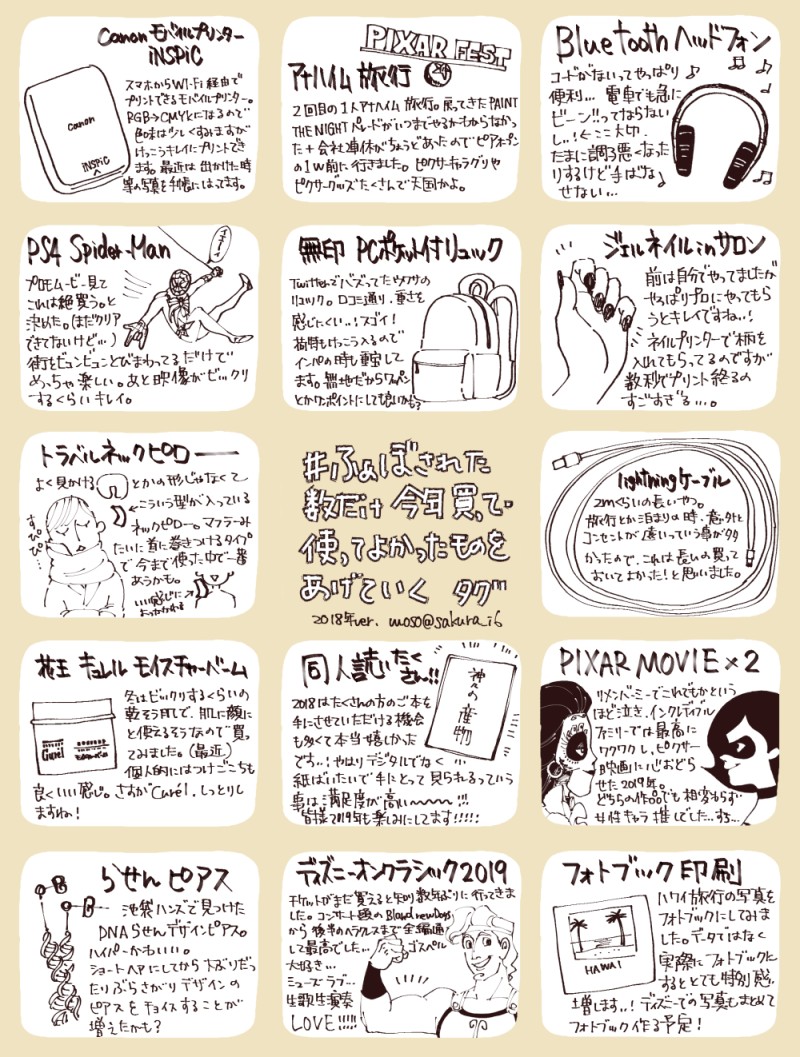 Canon モバイルプリンター
iNSPiC
スマホからWi-Fi経由で
プリントできるモバイルプリンター。
RGB→CMYとになるので
色味は少しくすみますが
けっこうキレイにプリントでき
ます。最近は出かけた時
等の写真を手帳にはってます。
Canon
iNSPiC
PIXAR FEST
アナハイム旅行
2回目の1人アナハイム旅行。戻ってきたPAINT
THE NIGHTパレードがいつまでやるかもわからなかっ
た+会社連休がちょうどあったのでピアオープン
の1W前に行きました。ピクサーキャラグリや
ピクサーグッズたくさんで天国かよ。
Bluetoothヘッドフォン
コードがないってやっぱり
便利… 電車でも急に
ビーン!!ってならない
し..!←ここ大切.
たまに調子悪くなった
りするけど手ばな
せない…
PS4 Spider-Man
プロモムービー見て
これは絶買う。と
決めた。(まだクリア
できてないけど…)
街をビュンビュンとびまわってるだけで
めっちゃ楽しい。あと映像がビックリ
するくらいキレイ。
無印 PCポケット付リュック
Twitterでバズってたウワサの
リュック。口コミ通り、重さを
感じにくい..!スゴイ!
荷物もけっこう入るので
インパの時も重宝して
ます。無地だからワッペン
とかワンポイントにしても良いかも?
ジェルネイルinサロン
前は自分でやってましたが
やっぱりプロにやってもら
うとキレイですね..!
ネイルプリンターで柄を
入れてもらってるのですが
数秒でプリント終るの
すごすぎる….
トラベルネックピロー
よく見かける とかの形じゃなくて
←こういう型が入っている
ネックピロー。マフラーみ
たいに首に巻きつけるタイプ
で今まで使った中で一番
あうかも。
すぴぴ…
いい感じに
#ふぁぼされた
数だけ今年買って・
使ってよかったものを
あげていく タグ
2018年ver. moso@sakura_i6
lightningケーブル
2mくらいの長いやつ。
旅行とか泊まりの時、意外と
コンセントが遠いっていう事が多
かったので、これは長いの買って
おいてよかった!と思いました。
花王 キュレル モイスチャーバーム
冬はビックリするくらいの
乾そう肌で、肌に顔に
と使えるそうなので買っ
てみました。(最近)
個人的にはつけごこちも
良くいい感じ。さすがCurél、しっとりし
ますね!
Curél
同人読いたくさん!!
2018はたくさんの方のご本を
手にさせていただける機会
も多くて本当嬉しかった
でち..!やはりデジタルでなく
紙ばいたいで手にとって見られるってい
事は満足度が高い〜〜!!!
皆様2019年も楽しみにしてます!!!!!
神々の産物
PIXAR MOVIE×2
リメンバーミーでこれでもかという
ほど泣き、インクレディブル
ファミリーでは最高に
ワクワクし、ピクサー
映画に心おどら
せた2019年。
どちらの作品でも相変わらず
女性キャラ推しでした…する…
らせんピアス
池袋ハンズで見つけた
DNAらせんデザインピアス。
ハイパーかわいい。
ショートヘアにしてから大ぶりだっ
たりぶらさがりデザインの
ピアスをチョイスすることが
増えたかも?
ディズニーオンクラシック2019
チケットがまだ買えると知り数年ぶりに行ってきま
した。コンサート題のBrand new Day
から後半のヘラクレスまで全編通
して最高でした… ゴスペル
大好き…
ミューズラブ…
生歌生演奏
LOVE!!!!!
フォトブック印刷
ハワイ旅行の写真を
フォトブックにしてみま
した。データではなく
実際にフォトブックに
するととても特別感
増します..!ディズニーでの写真もまとめて
フォトブック作る予定!
HAWAI